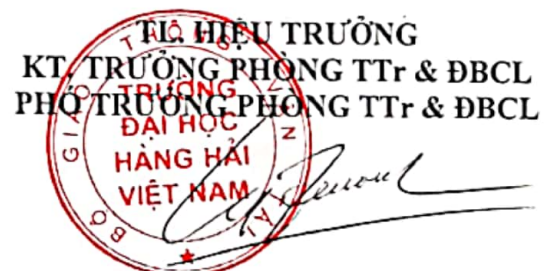 TL. HIỆU TRƯỞNG
KT. TRƯỞNG PHÒNG TTr & ĐBCL
PHÓ TRƯỞNG PHÒNG TTr & ĐBCL
BỘ GIAO THÔNG VẬN TẢI
TRƯỜNG
ĐẠI HỌC
HÀNG HẢI
VIỆT NAM